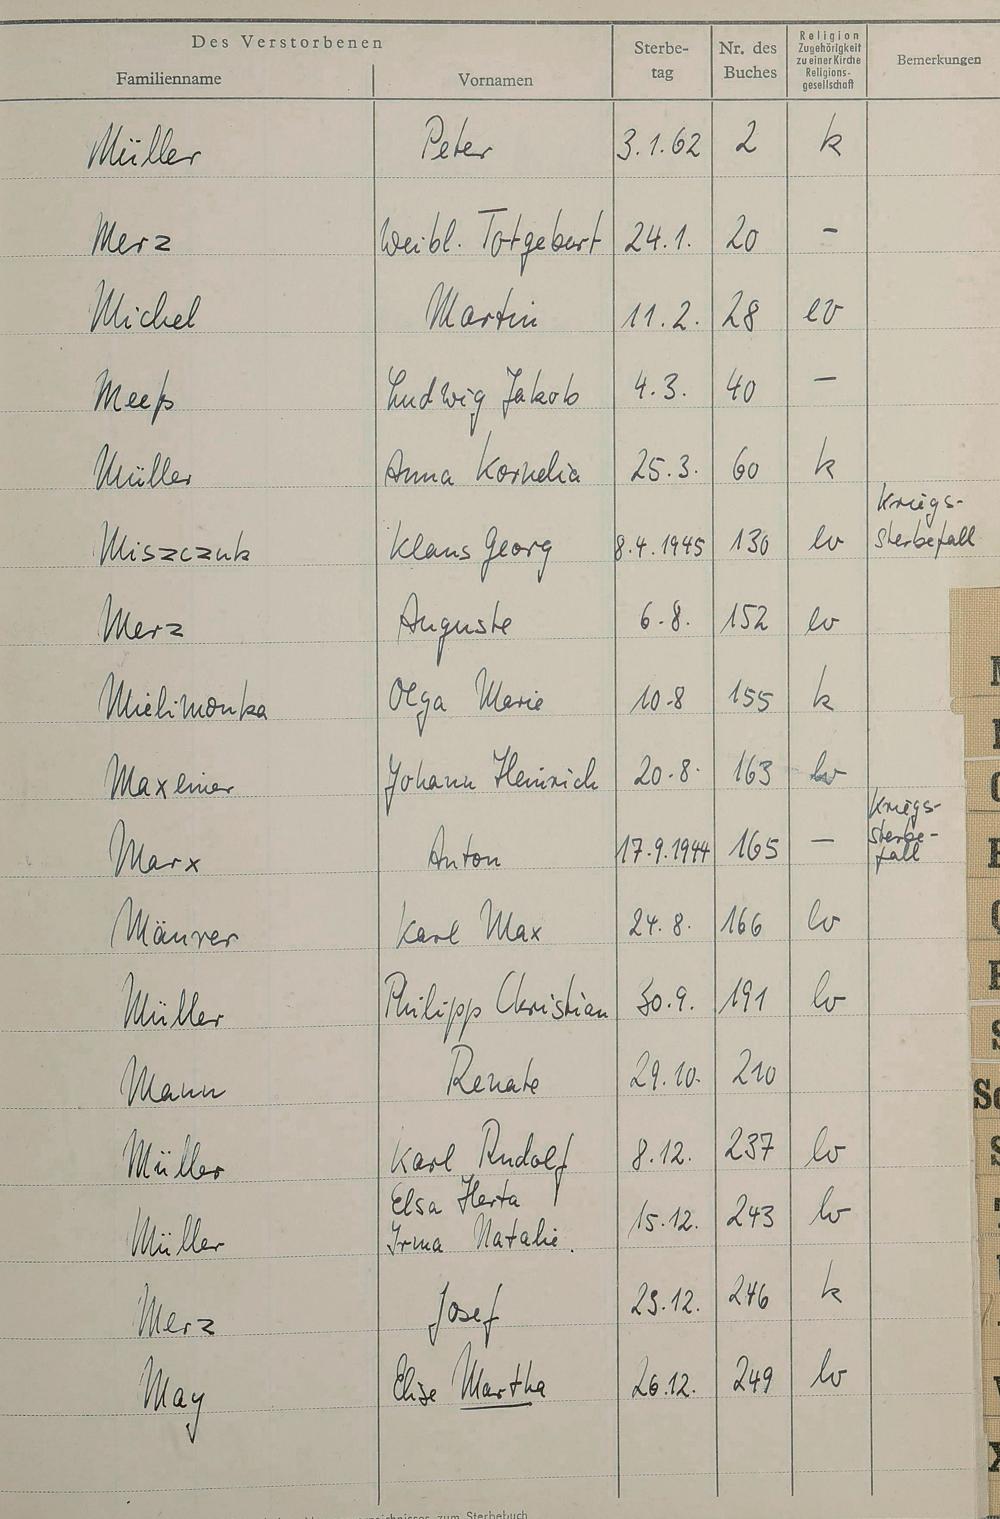 Des Verstorbenen
Familienname Vornamen Sterbe-
tag Nr. des
Buches Religion
Zugehörigkeit
zu einer Kirche
Religions-
gesellschaft Bemerkungen
Müller Peter 3.1.62 2 k
Merz Weibl. Totgeburt 24.1. 20 –
Michel Martin 11.2. 28 ev
Meeß Ludwig Jakob 4.3. 40 –
Müller Anna Kornelia 25.3. 60 k
Miszczuk Klaus Georg 8.4.1945 130 ev Kriegs-
sterbefall
Merz Auguste 6.8. 152 ev
Mielimonka Olga Marie 10.8 155 k
Maxeiner Johann Heinrich 20.8. 163 ev
Marx Anton 17.9.1944 165 – Kriegs-
sterbe-
fall
Mäurer Karl Max 24.8. 166 ev
Müller Philipp Christian 30.9. 191 ev
Mann Renate 29.10. 210
Müller Karl Rudolf 8.12. 237 ev
Müller Elsa Herta
Irma Natalie. 15.12. 243 ev
Merz Josef 23.12. 246 k
May Elise Martha 26.12. 249 ev
zum Sterbebuch